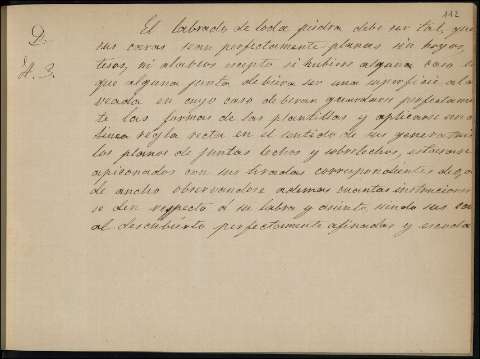 112
El labrado de toda piedra debe ser tal, que
sus caras sean perfectamente planas sin hoyos,
ni alabeos si hubiere alguna
que alguna junta debiera ser una superficie ala
veada en cuyo caso deberan guardarse perfectamen
te las formas de las plantillas y aplicarse
regla recta en el sentido de sus
los planos de juntas lechos y sobrelechos, estaran
apiconados con sus tiradas correspondientes de
de ancho observandose ademas cuantas instrucciones
se den respecto á su labra y asiento siendo sus
al descubierto perfectamente afinadas y